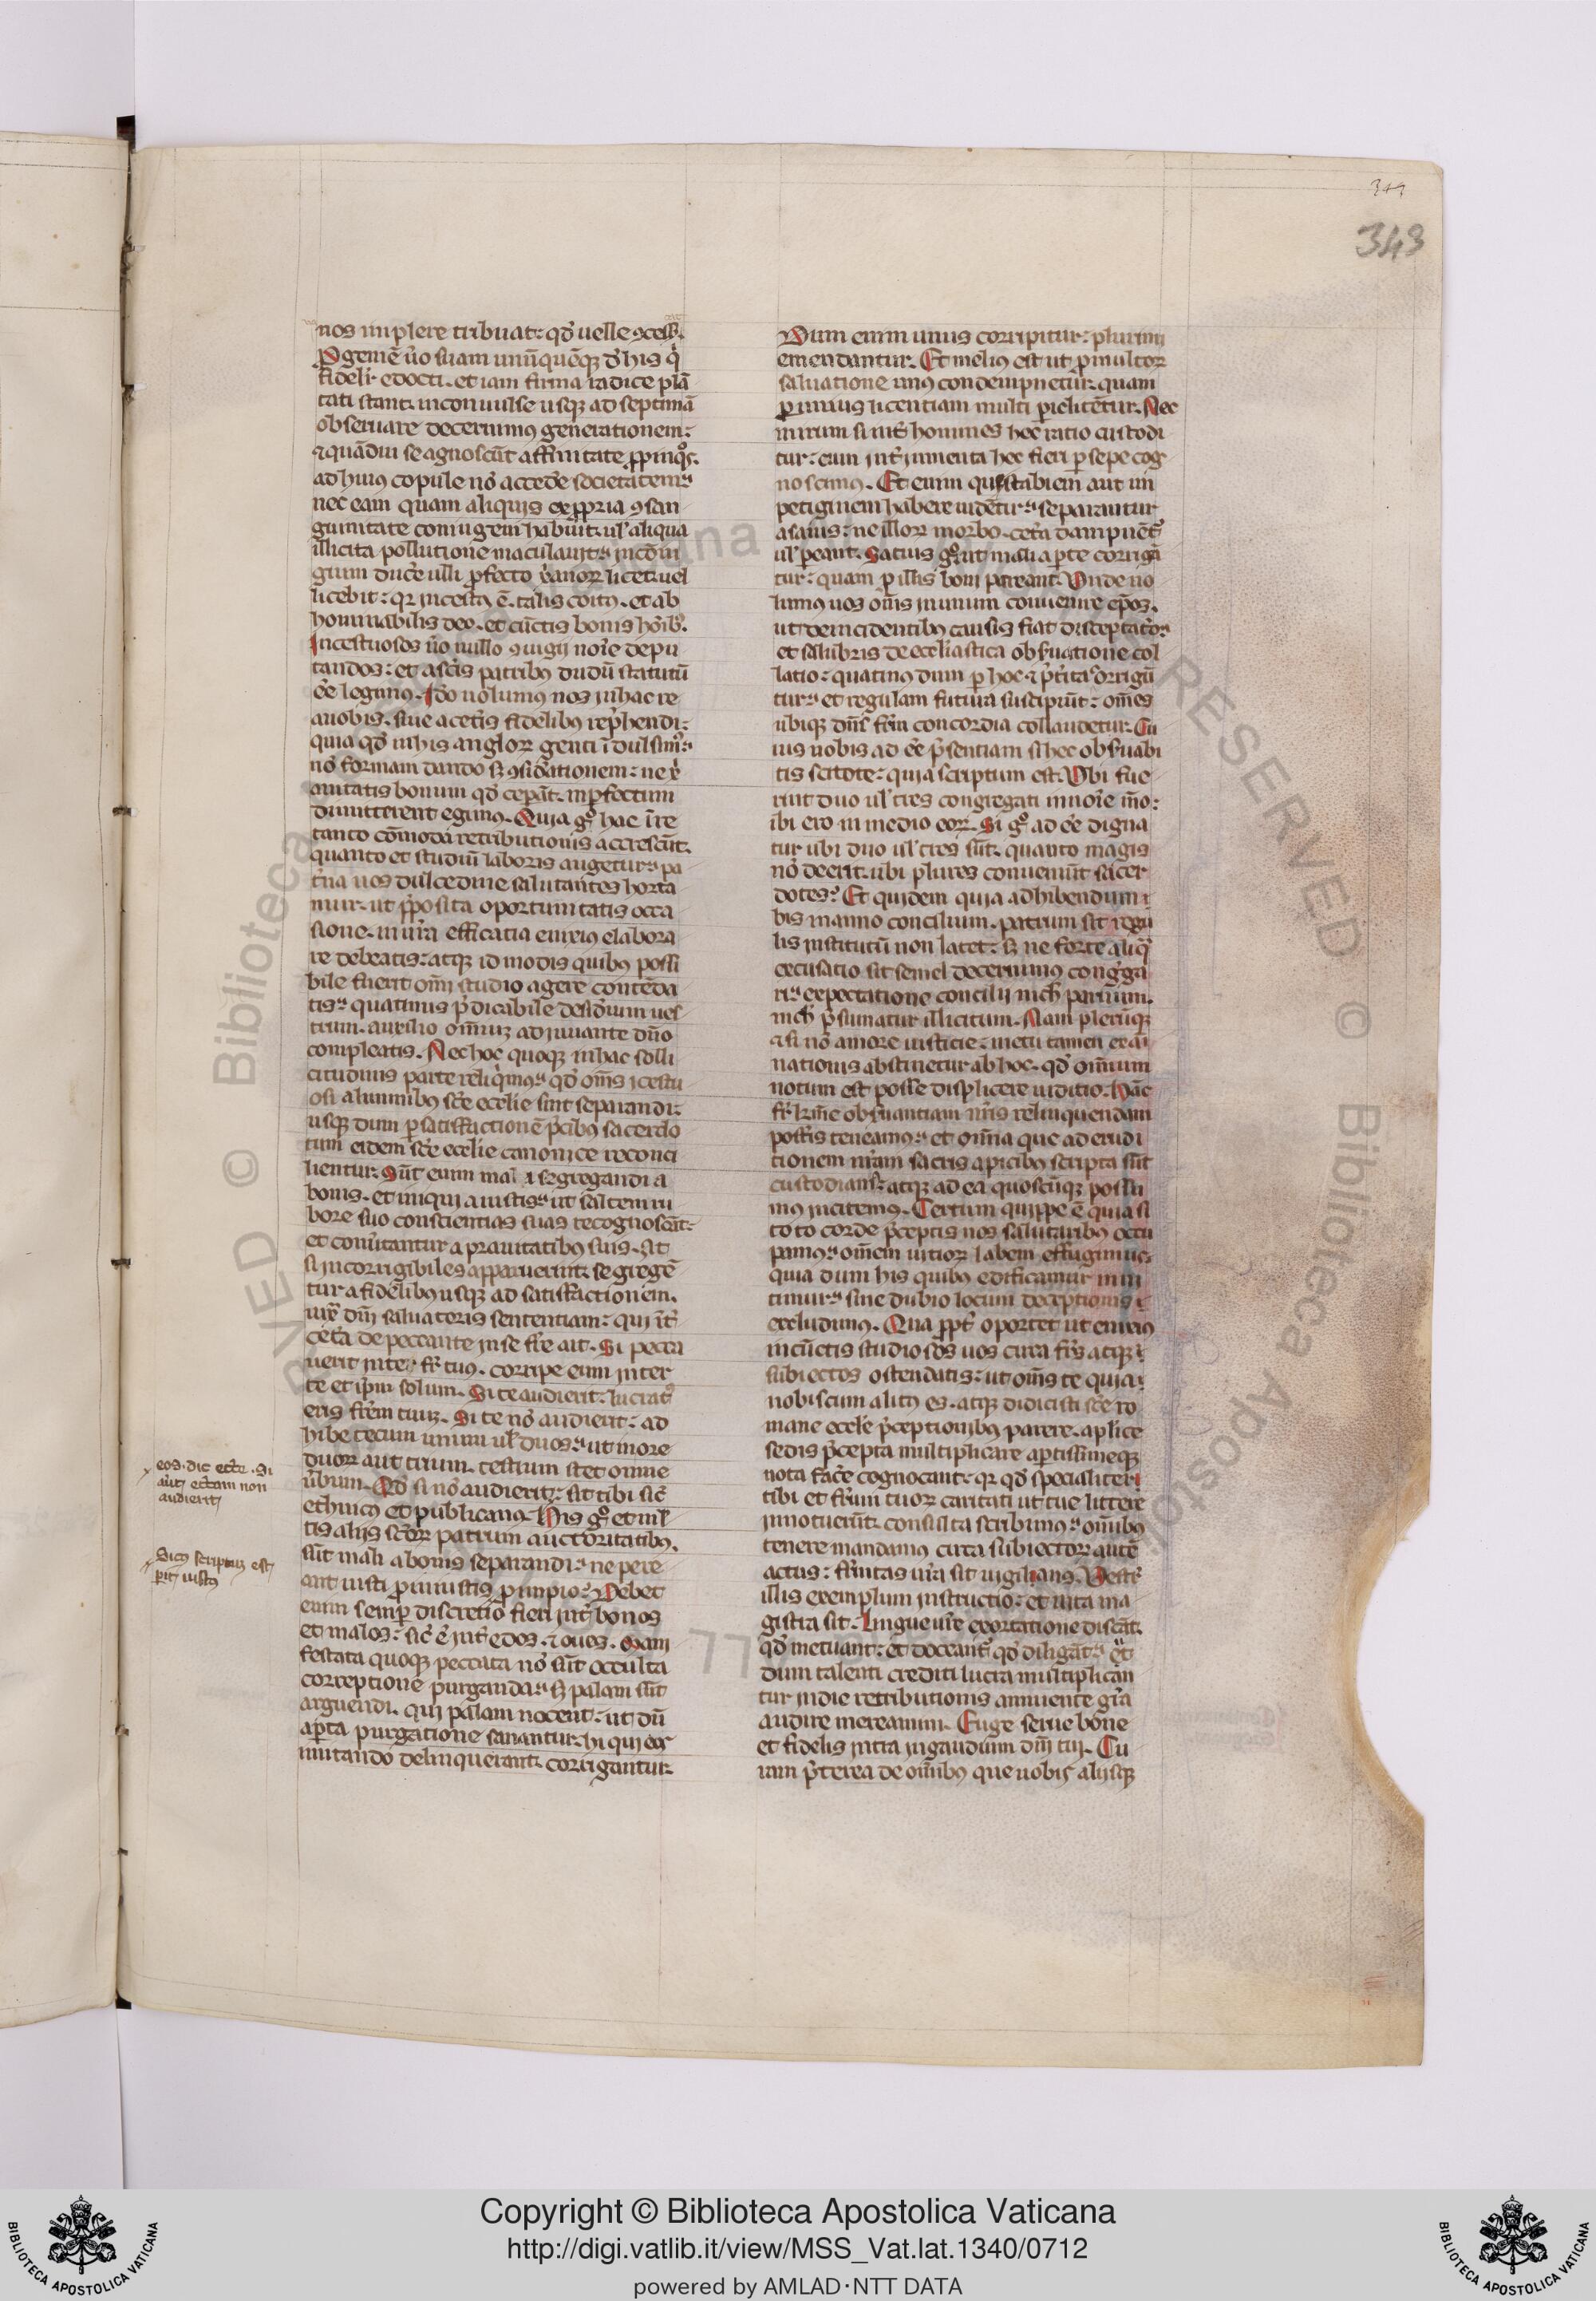 344
343
nos implere tribuat: qđ uelle ꝯcess̃.
Progeniẽ ũo suam unũquẽqꝫ đ his q̇
fideliʳ edocti. et iam firma radice plã
tati stant. inconuulse usqꝫ ad septimã
obseruare decernimus generationem:
⁊ quãdiu se agnoscũt affinitate ꝓpinq̊s.
ad huius copule nõ acceđe societatem:
nec eam quam aliquis ex ꝓpria ꝯsan
guinitate coniugem habuit. uł aliqua
illicita pollutione maculauit: in cõiu
gium duce̾ ulli ꝓfecto x̾anoꝝ licet. uel
licebit: qꝛ incestꝰ ẽ. talis coitꝰ. et ab
hominabilis deo. et cũctis bonis hoĩbꝰ.
Incestuosos ũo nullo ꝯiugij noĩe depu
tandos: et a sc̃is patribꝰ dudũ statutũ
eẽ legimꝰ. Ido nolumus nos in hac re
a uobis. siue a cetis̃ fidelibꝰ rep̾hendi:
quia qđ in his angloꝝ genti ĩdulsimꝰ:
nõ formam dando sꝫ ꝯsid̃ationem: ne xp̃i
anitatis bonum qđ cepãt. inperfectum
dimitterent egimꝰ. Quia g̊ hac ĩ re
tanto cõmoda retributionis accrescũt.
quanto et studiũ laboris augetur: pa
t̾na uos dulcedine salutantes horta
mur. ut ꝓposita oportunitatis occa
sione. in ur̃a efficatia enixius elabora
re debeatis: atqꝫ id modis quibꝰ possi
bile fuerit om̃i studio agere contẽda
tis: quatinus p̾dicabile desid̾ium ues
trum. auxilio om̃iuꝫ adiuuante dño
compleatis. Nec hoc quoqꝫ in hac solli
citudinis parte reliq̇mꝰ: qđ om̃s icestu
osi a luminibꝰ sc̃e ecclie sint separandi:
usqꝫ dum ꝑ satisfactionẽ p̾cibꝰ sacerdo
tum eidem sc̃e ecclie canonice reconci
lientur. Sũt enim mali segregandi a
bonis. et iniqui a iustis: ut saltem ru
bore suo conscientias suas recognoscãt:
et conu̾tantur a prauitatibꝰ suis. sit
si incorrigibiles apparuerint. segregẽ
tur a fidelibꝰ usqꝫ ad satisfactionem.
iux̃ dñi saluatoris sententiam: qui ĩt̾
cet̾a de peccante in se fr̃e ait. Si pecca
uerit in te fr̃ tuꝰ. corripe eum inter
te et ip̃m solum. Si te audierit. lucratꝰ
eris fr̃em tuuꝫ. Si te nõ audierit: ad
hibe tecum unum uł duos: ut in ore
duoꝝ aut trium. testium stet omne
u̾bum. Qđ si nõ audierit: sit tibi sic̃
ethnicꝰ et publicanꝰ. His g̊ et ml̃
tis alijs sc̃oꝝ patrum auctoritatibꝰ.
sũt mali a bonis separandi: ne pere
ant iusti ꝓ iniustis ꝓ impio: Debet
enim semꝑ discretio fieri int̾ bonos
et malos: sic̃ ẽ int̾ edos. ⁊ oues. Mani
festata quoqꝫ peccata nõ sũt occulta
correptione purganda: sꝫ palam sũt
arguendi. qui palam nocent: ut dũ
aꝑta purgatione sanantur. hi qui eos
imitando delinquerant. corrigantur.
eos. dic ecc̃e. Si
aut̃ ecc̃am non
audierit
Sicꝰ scriptuꝫ est
perit iustꝰ
Dum enim unus corripitur: plurimi
emendantur. Et meliꝰ est ut ꝓ multoꝝ
saluatione unꝰ condempnetur. quam
ꝑ unius licentiam multi piclitẽtur. Nec
mirum si int̾ homines hec ratio custodi
tur: cum int̾ iumenta hec fieri ꝑ sepe cog
noscimꝰ. Et enim que scabiem aut im
petiginem habere uidẽtur: separantur
a sanis: ne illoꝝ morbo. cet̾a dampnẽtꝰ
uł ꝑeant. Satius g̊. ut mali aꝑte corrigã
tur: quam ꝑ illis boni pereant. Unde uo
lumꝰ uos om̃s in unum conuenire ep̃os.
ut de incidentibꝰ causis fiat disceptatio:
et salubris de ecclesiastica obs̾uatione col
latio: quatinꝰ dum ꝑ hoc ⁊ p̾t̾ita corrigũ
tur: et regulam futura susciꝑiũt: om̃es
ubiqꝫ dñs̃ frũ concordia collaudetur. Cu
ius uobis ad eẽ p̾sentiam si hec obs̾uabi
tis scitote: quia scriptum est. Ubi fue
rint duo uł tres congregati in noĩe mo:
ibi ero in medio eoꝝ. Si g̊ ad eẽ digna
tur ubi duo uł tres sũt. quanto magis
nõ deerit. ubi plures conueniũt sacer
dotes? Et quidem quia adhibendum
bis in anno concilium. patrum sit regu
lis institutũ non latet: sꝫ ne forte aliq̃
excusatio sit semel decernimus congrega
ri: expectatione concilij nich̃ prauum.
nich̃ p̾sumatur illicitum. Nam plerũqꝫ
⁊ si nõ amore iusticie: metu tamen exãi
nationis abstinetur ab hoc. qđ om̃ium
notum est posse displicere iuditio. Hãc
fr̃ kr̃me obs̾uantiam nr̃is relinquendam
post̾is teneamꝰ: et omĩa que ad erudi
tionem nr̃am sacris apicibꝰ scripta sũt
custodiamꝰ: atqꝫ ad ea quoscũqꝫ possu
mꝰ incitemꝰ. Certum quippe ẽ quia si
toto corde p̾ceptis nos salutaribꝰ occu
pamꝰ: om̃em uitioꝝ labem effugimus.
quia dum his quibꝰ edificamur inni
timur: sine dubio locum deceptionis
excludimꝰ. Qua ꝓpt̾ oportet ut enixiꝰ
in cũctis studio sos uos cura fr̃is atqꝫ
subiectos ostendatis: ut om̃s te quia
nobiscum alitꝰ es. atqꝫ didicisti sc̃e ro
mane eccl̃e p̾ceptionibꝰ parere. aplice
sedis p̾cepta multiplicare aꝑtissimeqꝫ
nota face̾ cognoscant: qꝛ qđ specialiter
tibi et fr̃um tuoꝝ caritati ut tue littere
innotuerũt. consulta scribimꝰ: om̃ibꝰ
tenere mandamꝰ circa subiectoꝝ autẽ
actus: fr̃nitas ur̃a sit uigilians. Vestr̃
illis exemplum instructio: et uita ma
gistra sit. Lingue ur̃e exortatione discãt.
qđ metuant: et doceantꝰ qđ diligãt: et
dum talenti crediti lucra multiplican
tur in die retributionis annuente gr̃a
audire mereamini. Euge serue bone
et fidelis intra in gaudium dñi tui. Cu
ram p̾terea de om̃ibꝰ que uobis alijsqꝫ